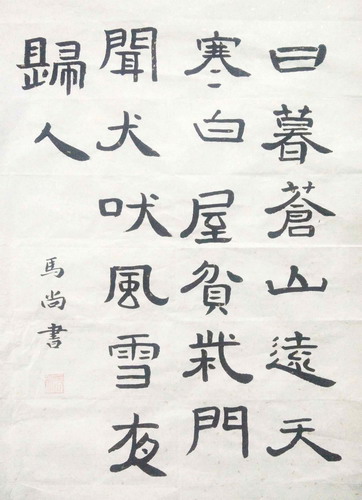 日暮蒼山遠天
寒白屋貧柴門
聞犬吠風雪夜
歸人
馬尚書